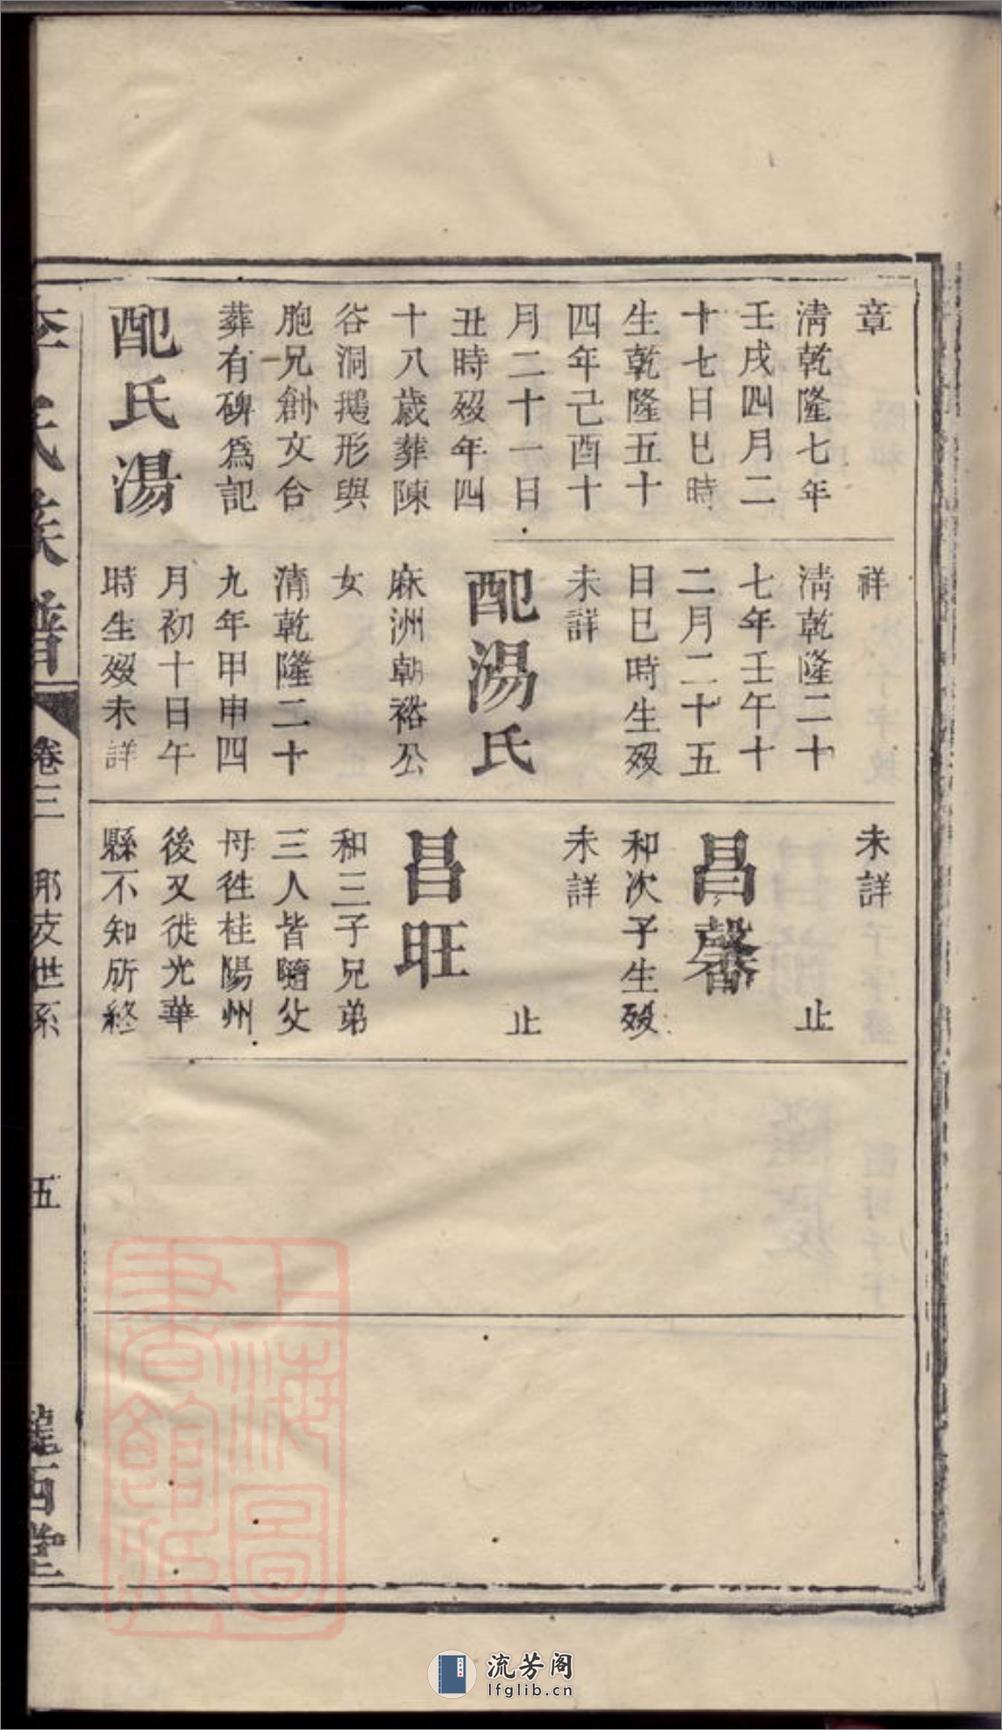 章
清乾隆七年
壬戌四月二
十七日巳時
生乾隆五十
四年己酉十
月二十一日
丑時歿年四
十八歲葬陳
谷洞鵝形與
胞兄創文合
葬有碑爲記
配氏湯
祥
清乾隆二十
七年壬午十
二月二十五
日巳時生歿
未詳
配湯氏
麻洲朝裕公
女
清乾隆二十
九年甲申四
月初十日午
時生歿未詳
未詳
止
昌馨
和次子生歿
未詳
止
昌旺
和三子兄弟
三人皆隨父
母徃桂陽州
後又徙光華
縣不知所終
李氏族譜
卷三
那支世系
五
隴西堂
上海圖
書館藏
流芳阁
lfglib.cn